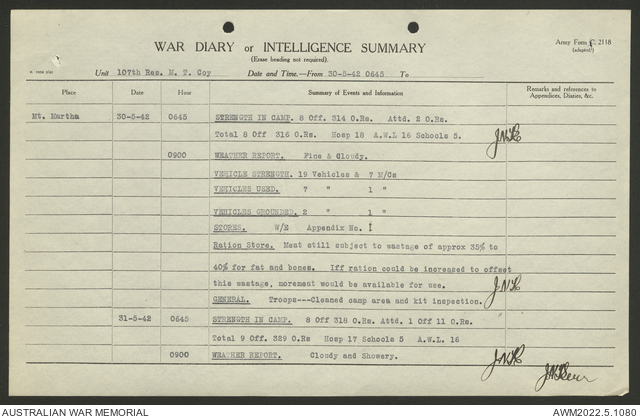 Army Form C. 2118
(adapted)
WAR DIARY or INTELLIGENCE SUMMARY
(Erase heading not required).
Unit 107th Res. M. T. Coy Date and Time.—From 30-5-42 0645 To
Place Date Hour Summary of Events and Information Remarks and references to Appendices, Diaries, &c.
Mt. Martha 30-5-42 0645 STRENGTH IN CAMP. 8 Off. 314 O.Rs. Attd. 2 O.Rs.
Total 8 Off 316 O.Rs. Hosp 18 A.W.L 16 Schools 5.
0900 WEATHER REPORT. Fine & Cloudy.
VEHICLE STRENGTH. 19 Vehicles & 7 M/Cs
VEHICLES USED. 7 " 1 "
VEHICLES GROUNDED. 2 " 1 "
STORES. W/E Appendix No. 1
Ration Store. Meat still subject to wastage of approx 35% to
40% for fat and bones. Iff ration could be increased to offset
this wastage, moremeat would be available for use.
GENERAL. Troops---Cleaned camp area and kit inspection.
31-5-42 0645 STRENGTH IN CAMP. 8 Off 318 O.Rs. Attd. 1 Off 11 O.Rs.
Total 9 Off. 329 O.Rs Hosp 17 Schools 5 A.W.L. 16
0900 WEATHER REPORT. Cloudy and Showery.
AUSTRALIAN WAR MEMORIAL AWM2022.5.1080